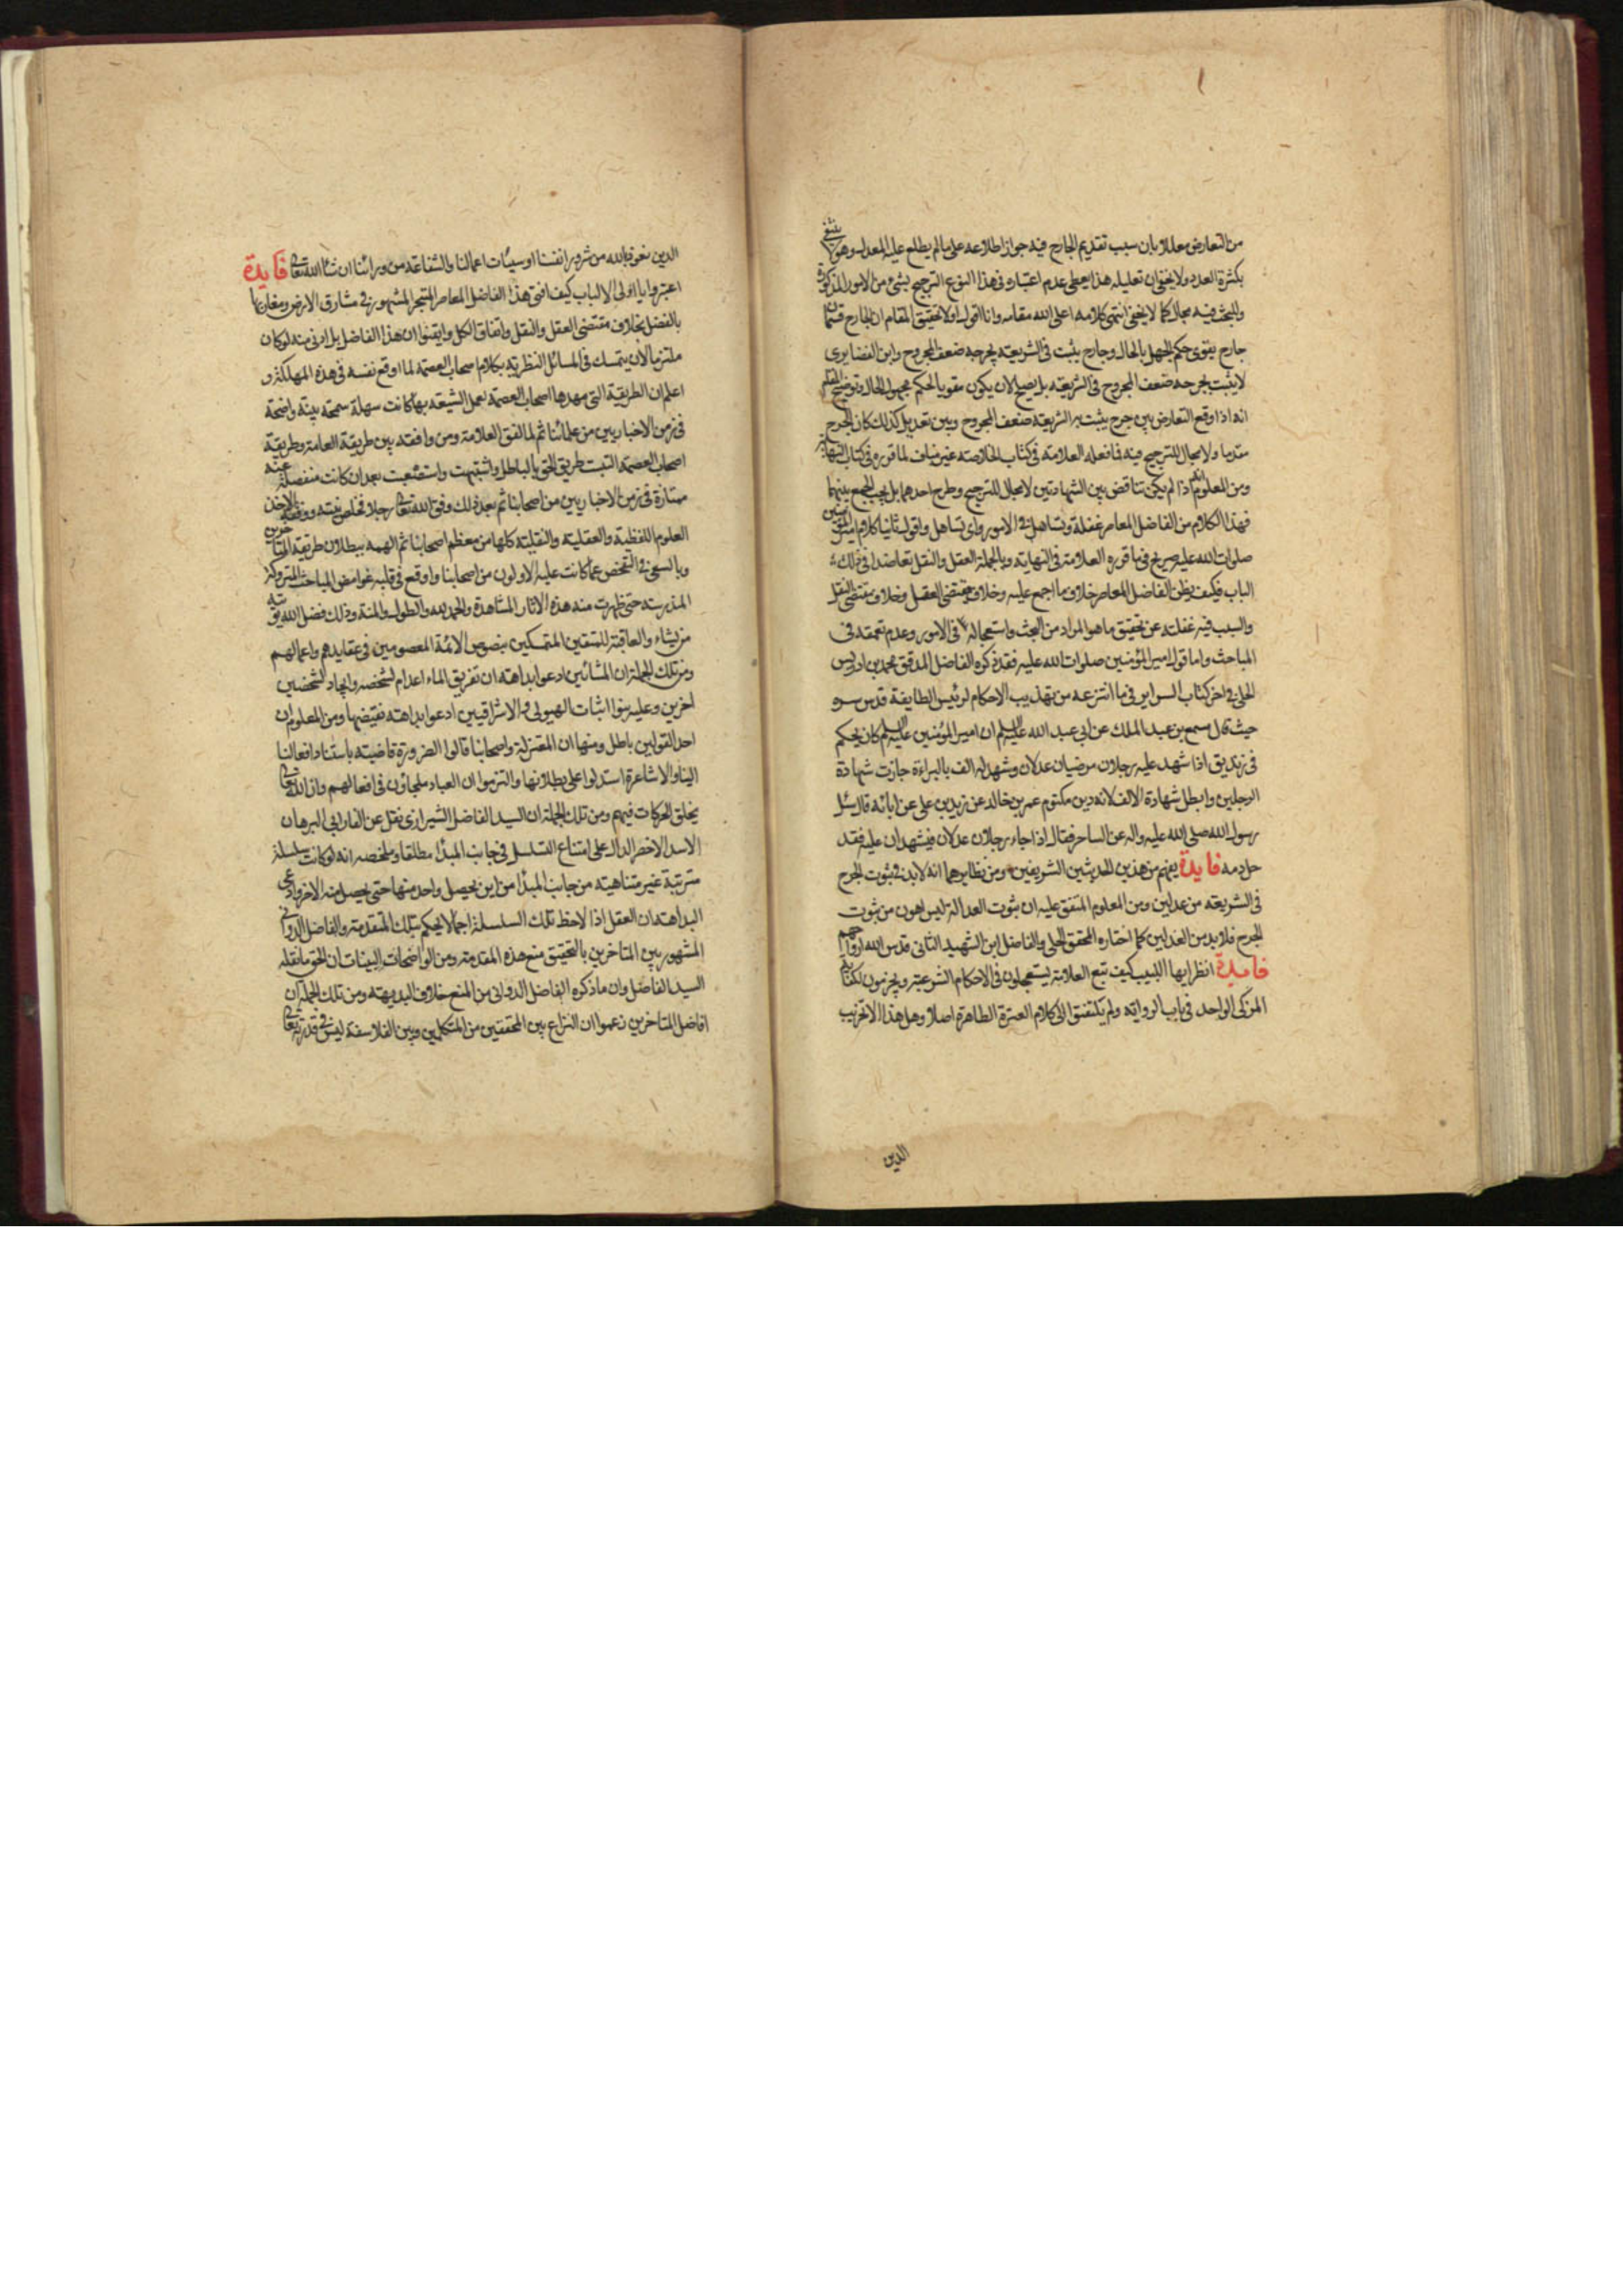 من التعارض معللا بان سبب تقديم الجارح فيه جواز اطلاعه على ما لم يطلع عليه المعدل وهو لا ينتفى
بكثرة العدد ولا يخفى ان تعليله هذا يعطى عدم اعتباره فى هذا النوع الترجيح بشئ من الامور المذكورة
وللبحث فيه مجال كما لا يخفى انتهى كلامه اعلى الله مقامه وانا اقول اولا تحقيق المقام ان الجارح قسمان
جارح يقوى حكم الجهل بالحال وجارح يثبت فى الشريعة بجرحه ضعف المجروح وابن الغضايرى
لا يثبت بجرحه ضعف المجروح فى الشريعة بل يصلح لان يكون مقويا لحكم مجهول الحال وتوضيح المقام
انه اذا وقع التعارض بين جرح يثبت به الشريعة ضعف المجروح وبين تعديل كذلك كان الجرح
مقدما ولا مجال للترجيح فيه فما فعله العلامة فى كتاب الخلاصه غير مناف لما قرره فى كتاب النهاية
ومن المعلوم انه اذا لم يكن تناقض بين الشهادتين لا مجال للترجيح وطرح احدهما بل يجب الجمع بينهما
فهذا الكلام من الفاضل المعاصر غفلة وتساهل فى الامور واى تساهل واقول ثانيا كلام امير المؤمنين
صلوات الله عليه صريح فيما قرره العلامة فى النهايه وبالجملة العقل والنقل تعاضدا فى ذلك
الباب فكيف يظن الفاضل المعاصر خلاف ما اجمع عليه وخلاف مقتضى العقل وخلاف مقتضى النقل
والسبب فيه غفلته عن تحقيق ما هو المراد من البحث واستعجاله فى الامور وعدم تعمقه فى
المباحث واما قول امير المؤمنين صلوات الله عليه فقد ذكره الفاضل المدقق محمد بن ادريس
الحلى فى اخر كتاب السراير فى ما انتزعه من تهذيب الاحكام لرئيس الطايفة قدس سره
حيث قال مسمع بن عبد الملك عن ابى عبد الله عليه السلم ان امير المؤمنين عليه السلم كان يحكم
فى زنديق اذا شهد عليه رجلان مرضيان عدلان وشهد له الف بالبراءة جازت شهادة
الرجلين وابطل شهادة الالف لانه دين مكتوم عمر بن خالد عن زيد بن على عن ابائه قال سئل
رسول الله صلى الله عليه واله عن الساحر فقال اذا جاء رجلان عدلان فيشهدان عليه فقد
حل دمه فايدة يفهم من هذين الحديثين الشريفين ومن نظايرهما انه لابد فى ثبوت الجرح
فى الشريعه من عدلين ومن المعلوم المتفق عليه ان ثبوت العدالة ليس اهون من ثبوت
الجرح فلابد من العدلين كما اختاره المحقق الحلى والفاضل ابن الشهيد الثانى قدس الله ارواحهم
فايدة انظر ايها اللبيب كيف تبع العلامة يستعجلون فى الاحكام الشرعية ويجزمون لكفاية
المزكى الواحد فى باب الرواية ولم يلتفتوا الى كلام العترة الطاهرة اصلا وهل هذا الا تخريب
الدين
الدين نعوذ بالله من شرور انفسنا او سيئات اعمالنا والشفاعة من ورائنا ان شاء الله تعالى فايدة
اعتبروا يا اولى الالباب كيف افتى هذا الفاضل المعاصر المتبحر المشهور فى مشارق الارض ومغاربها
بالفضل بخلاف مقتضى العقل والنقل واتفاق الكل وايقنوا ان هذا الفاضل بل ادنى منه لو كان
ملتزما لان يتمسك فى المسائل النظرية بكلام اصحاب العصمة لما اوقع نفسه فى هذه المهلكة و
اعلم ان الطريقة التى مهدها اصحاب العصمة لعمل الشيعه بها كانت سهلة سمحة بينة واضحة
فى زمن الاخباريين من علمائنا ثم لما لفق العلامة ومن وافقه بين طريقة العامة وطريقة
اصحاب العصمة التبست طريق الحق بالباطل واشتبهت واستصعبت بعد ان كانت منفصلة عنه
ممتازة فى زمن الاخباريين من اصحابنا ثم بعد ذلك وفق الله تعالى رجلا فخلص نيته ووفقه لاخذ
العلوم اللفظية والعقلية والنقلية كلها من معظم اصحابنا ثم الهمه ببطلان طريقة المتاخرين
وبالسعى فى التفحص عما كانت عليه الاولون من اصحابنا واوقع فى قلبه غوامض المباحث المتروكة
المندرسة حتى ظهرت منه هذه الاثار المشاهدة والحمد لله والطول والمنة وذلك فضل الله يؤتيه
من يشاء والعاقبة للمتقين المتمسكين بنصوص الائمة المعصومين فى عقايدهم واعمالهم
ومن تلك الجملة ان المشائين ادعوا بداهته ان تفريق الماء اعدام لشخصه وايجاد لشخصين
اخرين وعليه بنوا اثبات الهيولى والاشراقيين ادعوا بداهته نقيضها ومن المعلوم ان
احد القولين باطل ومنها ان المعتزلة واصحابنا قالوا الضرورة قاضيته باستناد افعالنا
الينا والاشاعرة استدلوا على بطلانها والتزموا ان العباد ملجاؤن فى افعالهم وان الله تعالى
يخلق الحركات فيهم ومن تلك الجملة ان السيد الفاضل الشيرازى نقل عن الفارابى البرهان
الاسد الاخصر الدال على امتناع التسلسل فى جانب المبدا مطلقا وملخصه انه لو كانت سلسلة
مترتبة غير متناهيته من جانب المبدا من اين يحصل واحد منها حتى يحصل منه الاخر وادعى
البداهته ان العقل اذا لاحظ تلك السلسلة اجمالا يحكم بتلك المقدمة والفاضل الدوانى
المشهور بين المتاخرين بالتحقيق منع هذه المقدمة ومن الواضحات البينات ان الحق ما نقله
السيد الفاضل وان ما ذكره الفاضل الدوانى من المنع خلاف البديهته ومن تلك الجملة ان
افاضل المتاخرين زعموا ان النزاع بين المحققين من المتكلمين وبين الفلاسفة ليس فى قدرته تعالى